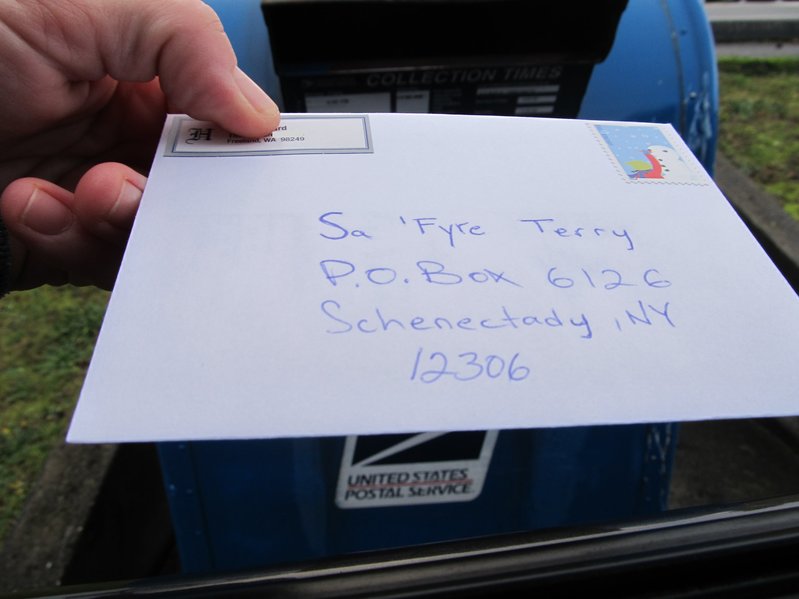 COLLECTION TIMES
H
Freeland, WA 98249
Sa 'Fyre Terry
P.O. Box 6126
Schenectady, NY
12306
UNITED STATES
POSTAL SERVICE